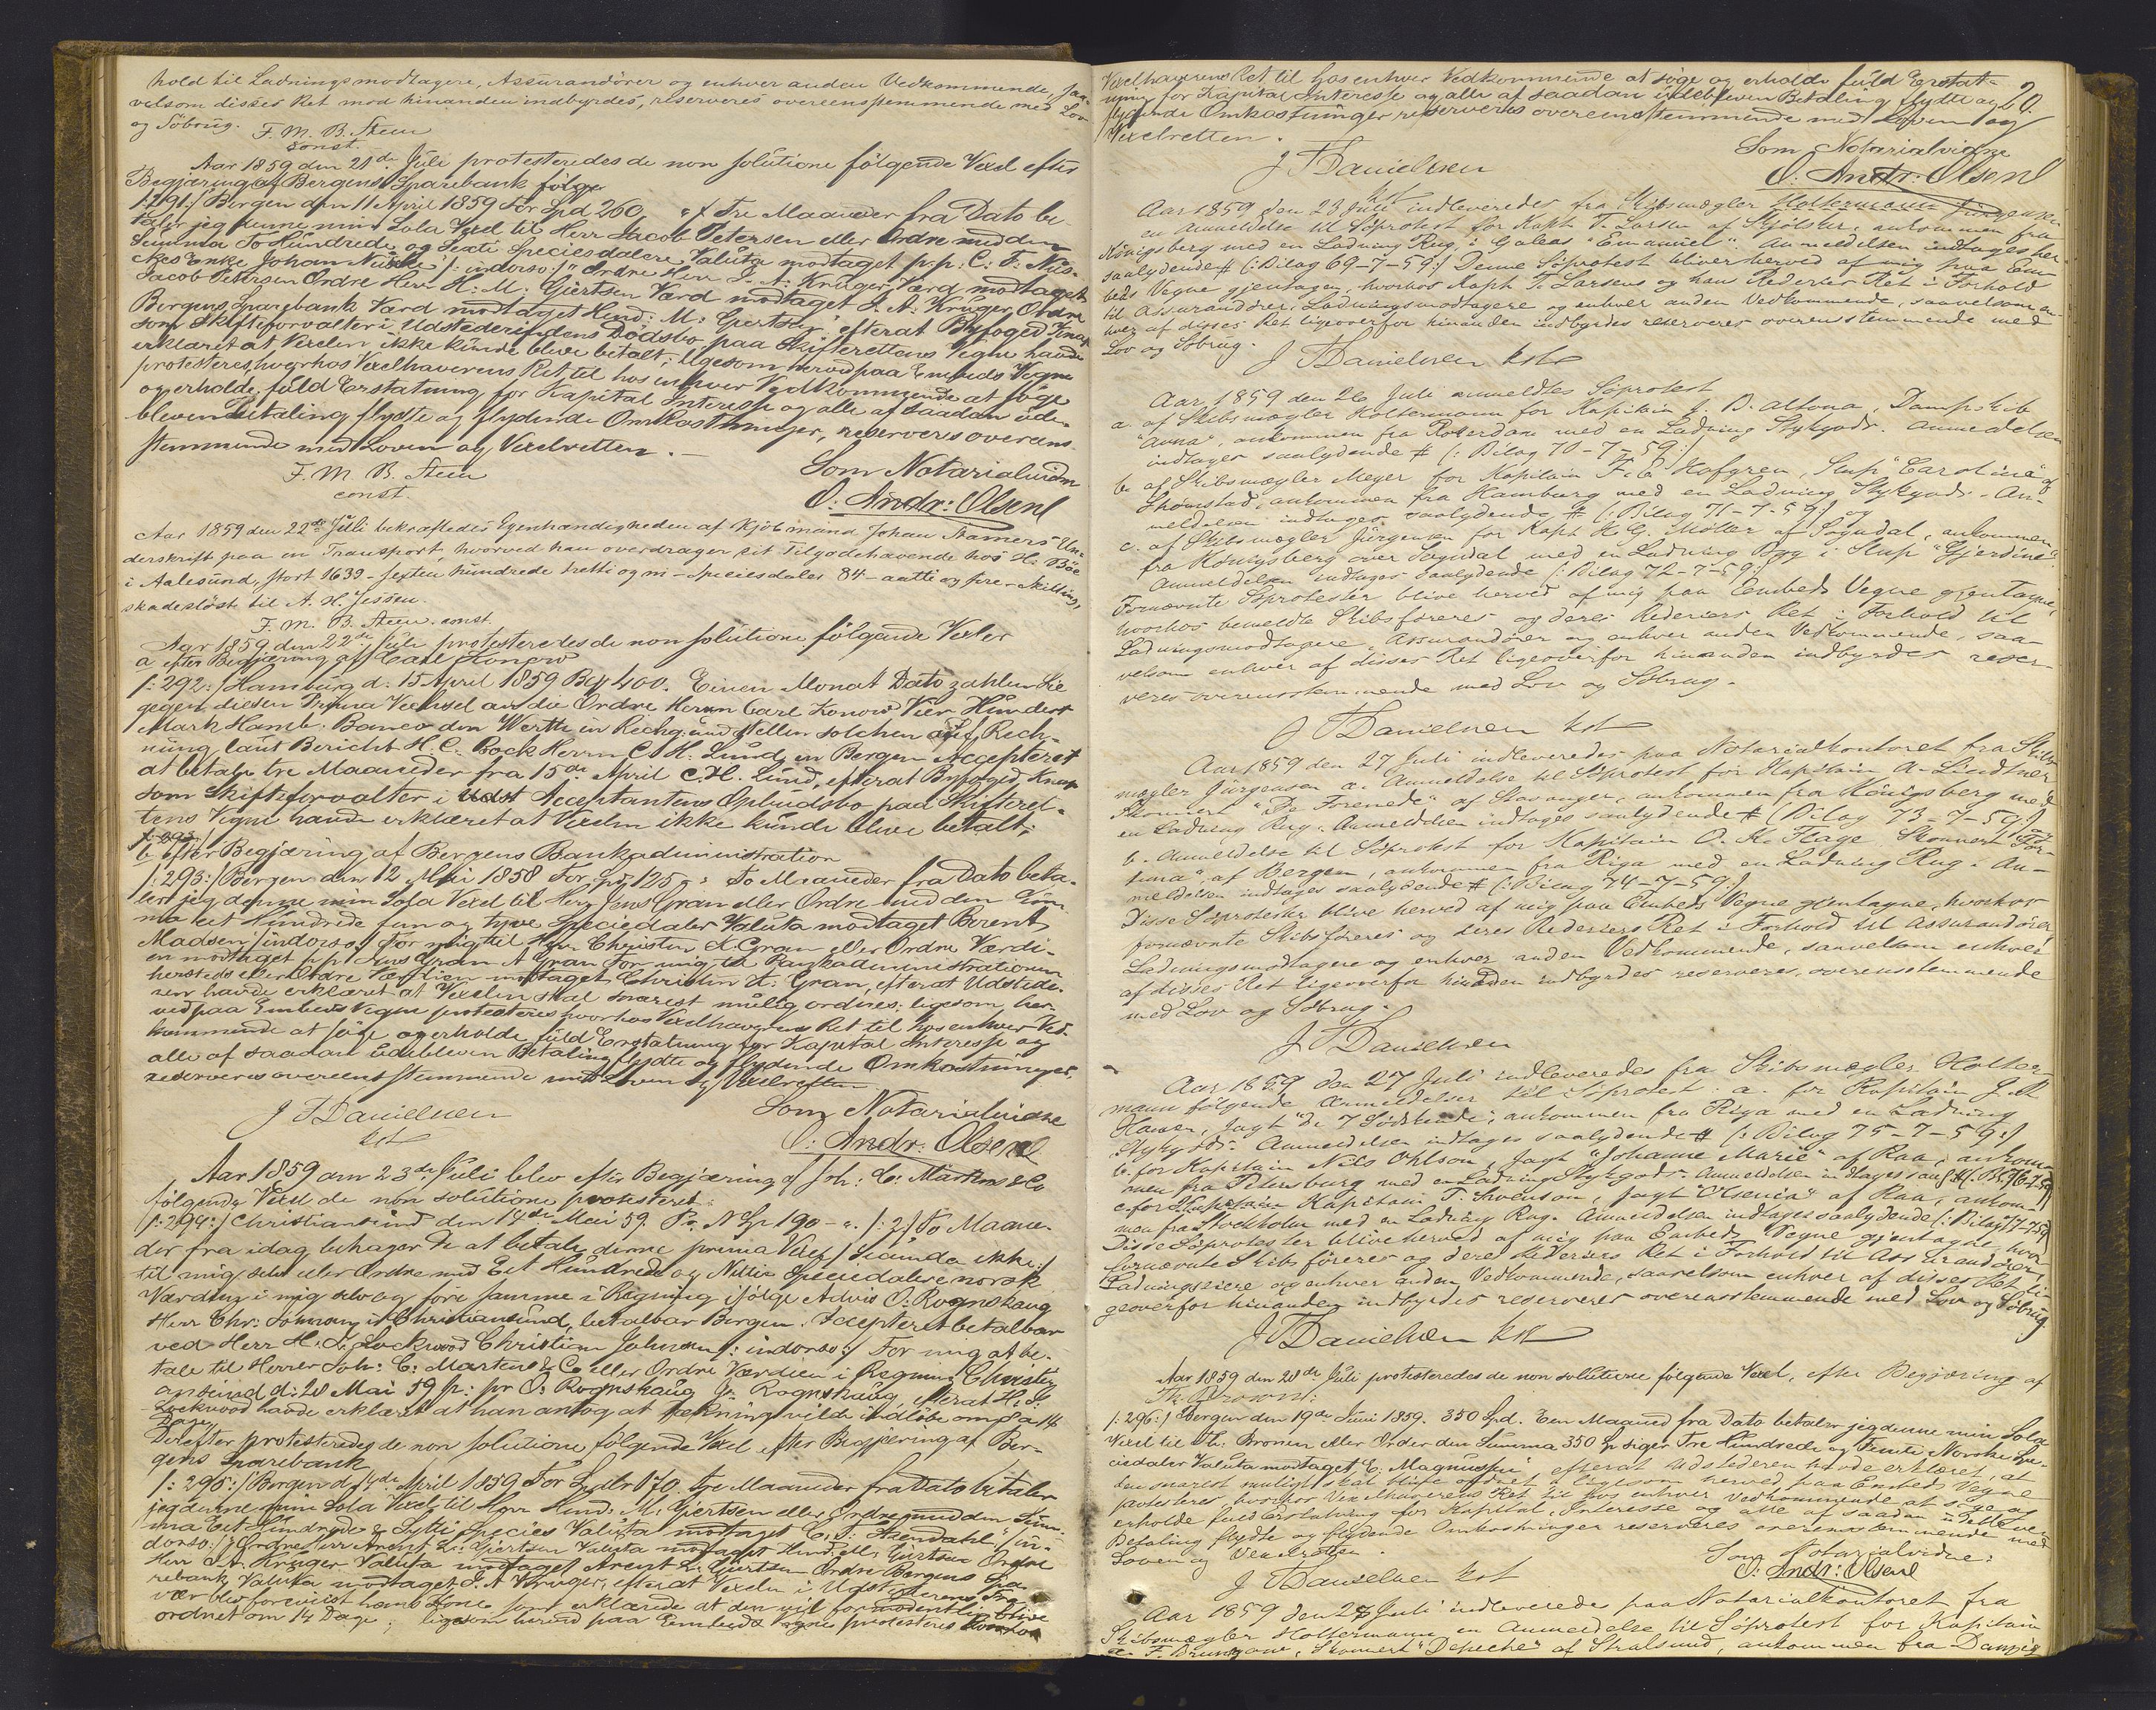 hold til Ladningsmodtagere, Assurandörer og enhver anden Vedkommende, saa-
velsom disses Ret mod hinanden indbyrdes, reserveres overeensstemmende med Lov
og Söbrug. F. M. B. Steen
const.
Aar 1859 den 21de Juli protesteredes de non solutione fölgende Vexel efter
Begjæring af Bergens Sparebank
/:291:/ Bergen den 11 April 1859 For Spd 260 Tre Maaneder fra Dato be-
taler jeg denne min Sola Vexel til Herr Jacob Petersen eller Ordre med den
Summa To Hundrede og Sexti Speciesdalere Valuta modtaget p.p. C. F. Næs-
Enke Johan /:indorso:/ Ordre Herr J. A. Krüger Værd modtaget
Jacob Petersen Ordre Herr H. M. Gjertsen Værd modtaget J. A. Krüger Ordre
Bergens Sparebank Værd modtaget Hend: M: Gjertsen efterat Byfoged
som Skifteforvalter i Udstederindens Dödsbo paa Skifterettens Vegne havde
erklæret at Vexelen ikke kunde blive betalt; ligesom herved paa Embeds Vegne
protesteres, hvorhos Vexelhaverens Ret til hos enhver Vedkommende at söge
og erholde fuld Erstatning for Kapital Interesse og alle af saadan ude-
bleven Betaling flydte og flydende Omkostninger, reserveres overens-
stemmende med Loven og Vexelretten.
F. M. B. Steen
const.
Som Notarialvidne
O: Andr: Olsen
Aar 1859 den 22de Juli bekræftedes Egenhændigheden af Kjöbmand Johan Stamers Un-
derskrift paa en Transport, hvorved han overdrager sit Tilgodehavende hos H. Böe
i Aalesund, stort 1639 - sexten hundrede tretti og ni - Speciesdaler 84 - aatti og fire - Skilling,
skadeslöst til A. H. Jessen.
F. M. B. Steen. const.
Aar 1859 den 22de Juli protesteredes de non solutione fölgende Vexler
a efter Begjæring af Carl Konow
/:292:/ Hamburg d. 15 April 1859 Bco 400. Einen Monat Dato zahlen Sie
gegen diesen Prima Wechsel an die Ordre Herrn Carl Konow Vier Hundert
Mark Hamb. Banco den Werth in Rechg: und stellen solchen auf Rech-
nung laut Bericht H. C. Bock Herrn C. H. Lund, in Bergen Accepteret
at betale tre Maaneder fra 15de April C. H. Lund, efterat Byfoged
som Skifteforvalter i Acceptantens Opbudsbo paa Skifteret-
tens Vegne havde erklæret at Vexelen ikke kunde blive betalt;
b. efter Begjæring af Bergens Bankadministration
/:293:/ Bergen den 12 Mai 1858 For Spd 125 To Maaneder fra Dato beta-
ler jeg denne min Sola Vexel til Herr Jens Gran eller Ordre med den Sum-
ma et Hundrede fem og tyve Speciedaler Valuta modtaget Berent
Madsen /:indorso:/ For mig til Herr Christen K. Gran eller Ordre Værdi-
en modtaget p.p. Jens Gran A Gran For mig til Bankadministrationen
hersteds eller Ordre Værdien modtaget Christen K. Gran, efterat Udstede-
ren havde erklæret at Vexelen skal snarest mulig ordnes; ligesom her-
ved paa Embeds Vegne protesteres hvorhos Vexelhaverens Ret til hos enhver Ved-
kommende at söge og erholde fuld Erstatning for Kapital Interesse og
alle af saadan udebleven Betaling flydte og flydende Omkostninger,
reserveres overeensstemmende med Loven og Vexelretten
J Danielsen
kst
Som Notarialvidne
O: Andr: Olsen
Aar 1859 den 23de Juli blev efter Begjæring af Joh: C: Martens & Co
fölgende Vexel de non solutione protesteret.
/:294:/ Christiansund den 14de Mai 59. Pr. N Sp 190 - To Maane-
der fra idag behager De at betale denne prima Vexel /secunda ikke/
til mig selv eller Ordre med Eet Hundrede og Nitti Speciedalere norsk
Værdien i mig selv og före samme i Regning ifölge Advis O: Rognshaug
Herr Chr: Johnsen i Christiansund, betalbar Bergen. Accepteret betalbar
ved Herr H. D. Lockwood Christian Johnsen /:indorso:/ For mig at be-
tale til Herrer Joh: C: Martens & Co eller Ordre Værdien i Regning Christi-
ansund d: 20 Mai 59 p: pr O: Rognshaug Jr. Rognshaug, efterat H. D.
Lockwood havde erklæret at han antog at Dækning vilde indlöbe om 8 a 14
Dage
Derefter protesteredes de non solutione fölgende Vexel efter Begjæring af Ber-
gens Sparebank
/:295:/ Bergen d 14de April 1859 For Spdlr 170. Tre Maaneder fra Dato betaler
jeg denne min Sola Vexel til Herr Hend: M. Gjertsen eller Ordre med den Sum-
ma Eet Hundrede & Sytti Species Valuta modtaget C. S. Stendahl /:in-
dorso:/ Ordre Herr Arent L. Gjertsen Valuta modtaget Hend: M: Gjertsen Ordre
Herr J. A. Krüger Valuta modtaget Arent L. Gjertsen Ordre Bergens Spa-
rebank Valuta modtaget J. A Krüger, efterat Vexelen i Udstederens Fra-
vær blev forevist hans Kone som erklærede at den vil formodentlig blive
ordnet om 14 Dage; ligesom herved paa Embeds Vegne protesteres hvorhos
20.
Vexelhaverens Ret til hos enhver Vedkommende at söge og erholde fuld Erstat-
ning for Kapital Interesse og alle af saadan udebleven Betaling flydte og
flydende Omkostninger reserveres overeensstemmende med Loven og
Vexelretten.
J Danielsen
kst
Som Notarialvidne
O: Andr: Olsen
Aar 1859 den 23 Juli indleveredes fra Skibsmægler Jürgensen
en Anmeldelse til Söprotest for Kapt. T. Larsen af Skjölster, ankommen fra
Königsberg med en Ladning Rug, i Galeas "Emanuel". Anmeldelsen indtages her
saalydende # (:Bilag 69-7-59:) Denne Söprotest bliver herved af mig paa Em-
beds Vegne gjentagen, hvorhos Kapt. T. Larsens og hans Rederies Ret i Forhold
til Assurandörer, Ladningsmodtagere og enhver anden Vedkommende, saavelsom en-
hver af disses Ret ligeoverfor hinanden indbyrdes reserveres overensstemmende med
Lov og Söbrug.
J Danielsen kst
Aar 1859 den 26 Juli anmeldtes Söprotest
a. af Skibsmægler Holtermann for Kapitain J. D. Altona, Dampskib
"Anna", ankommen fra Roterdam med en Ladning Stykgods. Anmeldelsen
indtages saalydende # (:Bilag 70-7-59:)
b. af Skibsmægler Meyer for Kapitain F. E. Hofgren, Slup "Carolina" af
Strömstad, ankommen fra Hamburg med en Ladning Stykgods. - An-
meldelsen indtages saalydende # (:Bilag 71-7-59:) og
c. af Skibsmægler Jürgensen for Kapt. H. G. Möller af Sogndal, ankommen
fra Königsberg over Sogndal med en Ladning Byg i Slup "Gjerdine"
Anmeldelsen indtages saalydende (:Bilag 72-7-59:)
Fornævnte Söprotester blive herved af mig paa Eembeds Vegne gjentagne,
hvorhos bemeldte Skibsföreres og deres Rederiers Ret i Forhold til
Ladningsmodtagere, Assurandörer og enhver anden Vedkommende, saa-
velsom enhver af disses Ret ligeoverfor hinanden indbyrdes reser-
veres overensstemmende med Lov og Söbrug.
J Danielsen kst
Aar 1859 den 27 Juli indleveredes paa Notarialkontoret fra Skibs-
mægler Jürgensen a. Anmeldelse til Söprotest for Kapitain A. Lindtner
Skonnert "De Forenede" af Stavanger, ankommen fra Königsberg med
en Ladning Rug. Anmeldelsen indtages saalydende # (Bilag 73-7-59:)
b. Anmeldelse til Söprotest for Kapitain O. K. Hage Skonnert "For-
tuna" af Bergen, ankommen fra Riga med en Ladning Rug. An-
meldelsen indtages saalydende # (:Bilag 74-7-59:)
Disse Söprotester blive herved af mig paa Embeds Vegne gjentagne, hvorhos
fornævnte Skibsföreres og deres Rederiers Ret i Forhold til Assurandörer,
Ladningsmodtagere og enhver anden Vedkommende, saavelsom enhver
af disses Ret ligeoverfor hinanden indbyrdes reserveres, overensstemmende
med Lov og Söbrug.
J Danielsen
Aar 1859 den 27 Juli indleveredes fra Skibsmægler Holter-
mann fölgende Anmeldelser til Söprotest: a. for Kapitain J. R
Hansen, Jagt "De 7 Södskende", ankommen fra Riga med en Ladning
Stykgods. Anmeldelsen indtages saalydende # (:Bilag 75-7-59:)
b. for Kapitain Nils Ohlson, Jagt "Johanne Marie" af Raa, ankom-
men fra Petersburg med en Ladning Stykgods. Anmeldelsen indtages saal # (:Bil. 76-7-59)
c. for Kapitain T. Svenson, Jagt "Olsenia" af Raa, ankom-
men fra Stockholm med en Ladning Rug. Anmeldelsen indtages saalydende (:Bilag 77-7-59)
Disse Söprotester blive herved af mig paa Embeds Vegne gjentagne hvor-
fornævnte Skibsföreres og deres Rederiers Ret i Forhold til Assurandörer,
Ladningseiere og enhver anden Vedkommende, saavelsom enhver af disses Ret li-
geoverfor hinanden indbyrdes reserveres overensstemmende med Lov og Söbrug.
J Danielsen kst
Aar 1859 den 28de Juli protesteredes de non solutione fölgende Vexel, efter Begjæring af
/:296:/ Bergen den 19de Juni 1859. 350 Spd. Een Maaned fra Dato betaler jeg denne min Sola
Vexel til Th. Bronen eller Order den Summa 350 Sp siger Tre Hundrede og Femti Norske Spe-
ciedaler Valuta modtaget C. Magnussen efterat Udstederen havde erklæret, at
den snarest muligt skal blive ordnet, ligesom herved paa Embeds Vegne
protesteres hvorhos Vexelhaverens Ret til hos enhver Vedkommende at söge og
erholde fuld Erstatning for Kapital, Interesse og alle af saadan udebleven
Betaling flydte og flydende Omkostninger reserveres overensstemmende med
Loven og Vexelretten.
J Danielsen kst
Som Notarialvidne:
O: Andr: Olsen
Aar 1859 den 28 Juli indleverede paa Notarialkontoret fra
Skibsmægler Holtermann en Anmeldelse til Söprotest for Kapitain
F., Skonnert "Depeche" af Stralsund, ankommen fra Danzig